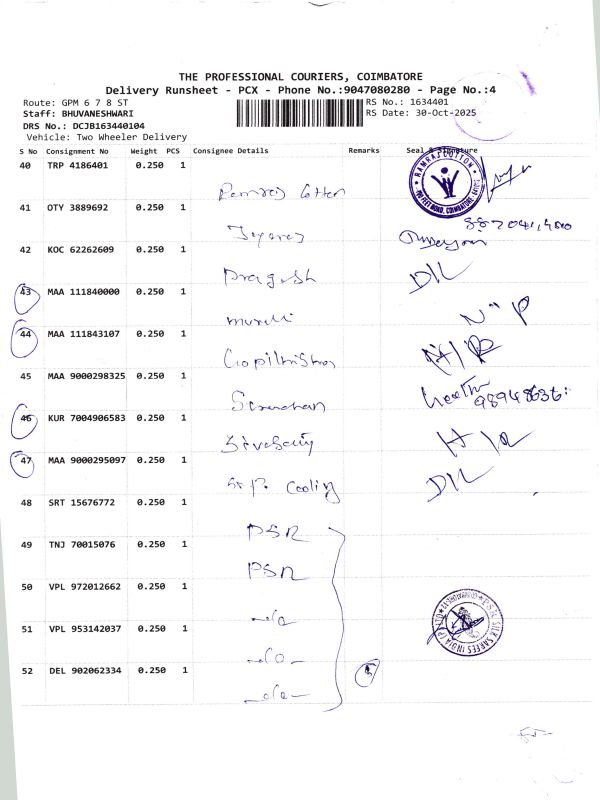 THE PROFESSIONAL COURIERS, COIMBATORE
Delivery Runsheet - PCX - Phone No.:9047080280 - Page No.:4
Route: GPM 6 7 8 ST
RS No.: 1634401
Staff: BHUVANESHWARI
RS Date: 30-Oct-2025
DRS No.: DCJB163440104
Vehicle: Two Wheeler Delivery
S No Consignment No Weight PCS Consignee Details Remarks Seal & Signature
40 TRP 4186401 0.250 1
RAMRAJ COTTON
Ramraj Cotton
41 OTY 3889692 0.250 1
42 KOC 62262609 0.250 1
D/L
Pragash
43 MAA 111840000 0.250 1
N P
Murali
44 MAA 111843107 0.250 1
45 MAA 9000298325 0.250 1
46 KUR 7004906583 0.250 1
47 MAA 9000295097 0.250 1
D/L
Cooling
48 SRT 15676772 0.250 1
PSR
49 TNJ 70015076 0.250 1
PSR
50 VPL 972012662 0.250 1
-do-
51 VPL 953142037 0.250 1
P.S.R SILK SAREES INDIA (P) LTD
-do-
52 DEL 902062334 0.250 1
5
-do-